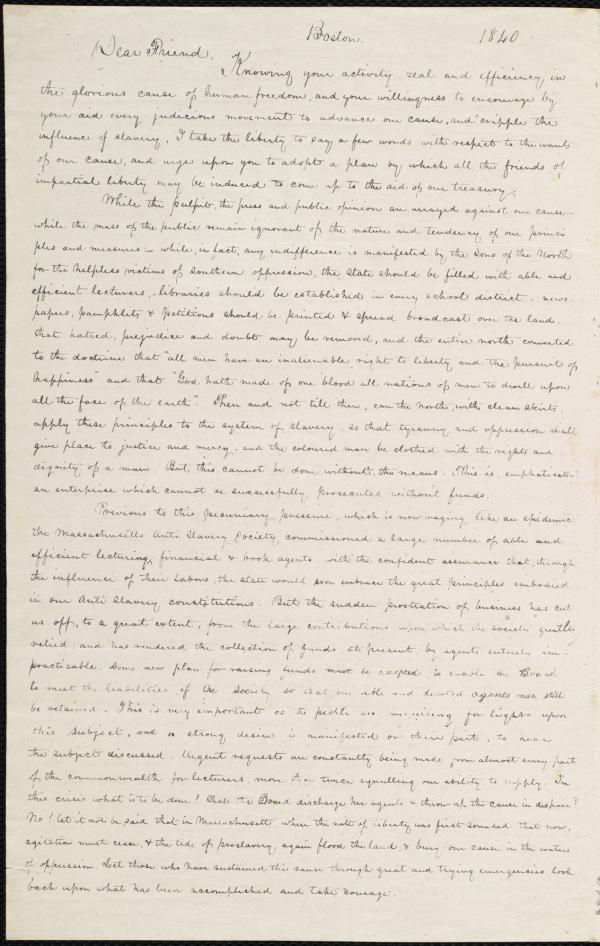 Boston. 1840
Dear Friend,
Knowing your activity, zeal and efficiency, in
the glorious cause of human freedom, and your willingness to encourage by
your aid every judicious movement to advance our cause, and cripple the
influence of slavery, I take the liberty to say a few words with respect to the wants
of our cause, and urge upon you to adopt a plan by which all the friends of
impartial liberty may be induced to come up to the aid of our treasury.
While the pulpit, the press and public opinion are arrayed against our cause –
while the mass of the public remain ignorant of the nature and tendency of our princi
ples and measures – while, in fact, any indifference is manifested by the sons of the North
for the helpless victims of southern oppression, the State should be filled with able and
efficient lecturers, – libraries should be established in every school district – news-
papers, pamphlets & petitions should be printed & spread broadcast over the land,
that hatred, prejudice and doubt may be removed, and the entire north converted
to the doctrine that "all men have an inalienable right to liberty and the pursuit of
happiness" and that "God hath made of one blood all nations of men to dwell upon
all the face of the earth". Then and not till then, can the North, with clean skirts,
apply these principles to the system of slavery, so that tyranny and oppression shall
give place to justice and mercy, and the coloured man be clothed with the rights and
dignity of a man. But this cannot be done without the means. This is, emphatically
an enterprise which cannot be successfully prosecuted without funds.
Previous to this pecuniary pressure, which is now raging like an epidemic
the Massachusetts Anti Slavery Society, commissioned a large number of able and
efficient lecturing, financial & book agents, with the confident assurance that, through
the influence of their labors, the state would soon embrace the great principles embodied
in our Anti Slavery constitutions. But the sudden prostration of business has cut
us off, to a great extent, from the large contributions upon which the society greatly
relied, and has rendered the collection of funds, at present, by agents entirely im-
practicable. Some new plan for raising funds must be adopted to enable the Board
to meet the liabilities of the Society so that our able and devoted agents may still
be retained. This is very important as the people are inquiring for light upon
this subject, and a strong desire is manifested on their part, to hear
the subject discussed. Urgent requests are constantly being made from almost every part
of the commonwealth for lecturers, more than twice equalling our ability to supply. In
this crisis what is to be done? Shall the Board discharge her agents & throw up the cause in despair?
No! let it not be said that in Massachusetts, where the note of liberty was first sounded that now,
agitation must cease, & the tide of proslavery again flood the land & bury our cause in the waters
of oppression. Let those who have sustained this cause through great and trying emergencies, look
back upon what has been accomplished and take courage.